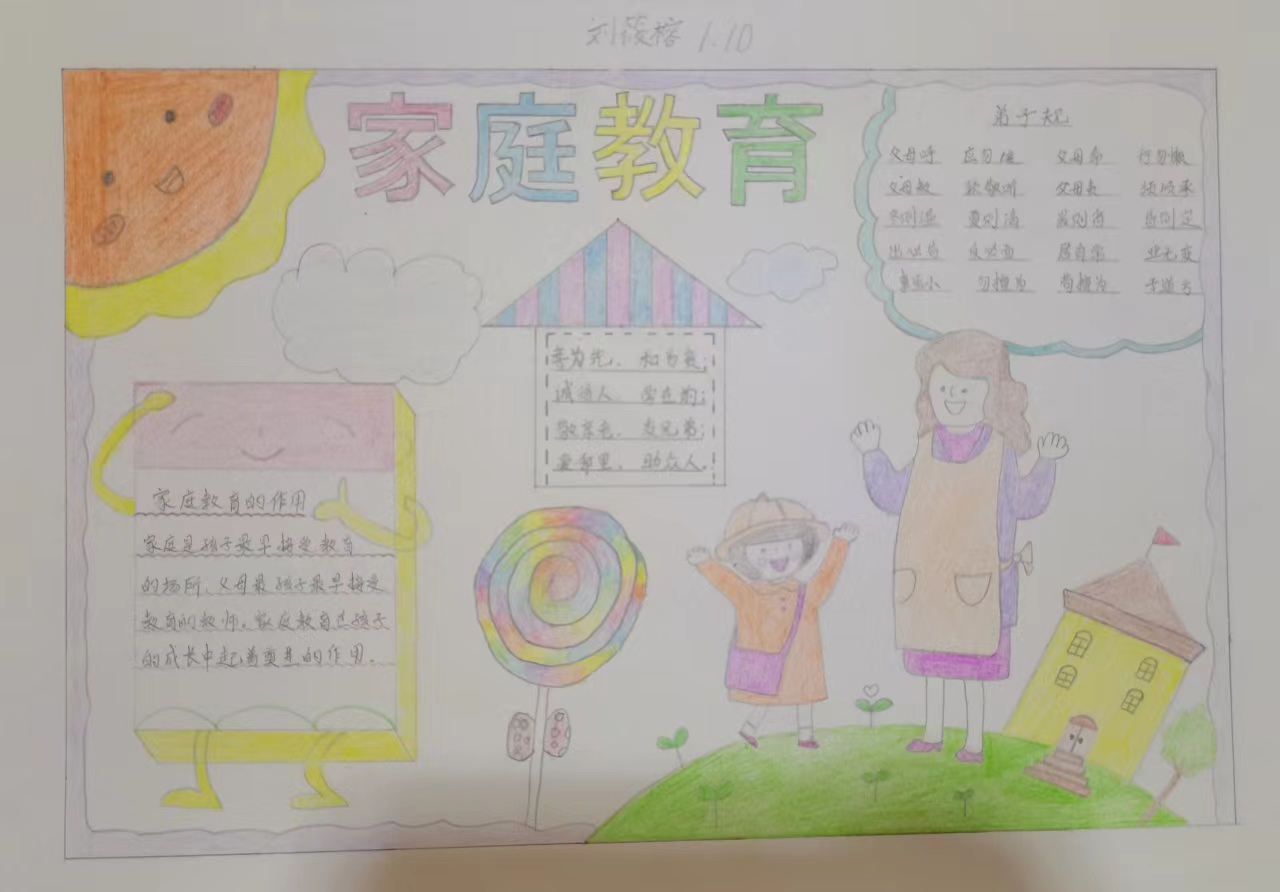 刘筱榕 1.10
家庭教育
弟子规
父母呼 应勿缓 父母命 行勿懒
父母教 须敬听 父母责 须顺承
冬则温 夏则凊 晨则省 昏则定
出必告 反必面 居有常 业无变
事虽小 勿擅为 苟擅为 子道亏
孝为先、和为贵;
诚待人、
敬亲长、爱兄弟;
爱邻里、助众人。
家庭教育的作用
家庭是孩子最早接受教育
的场所、父母最孩子最早接受
教育的教师。家庭教育在孩子
的成长中起着奠基的作用。